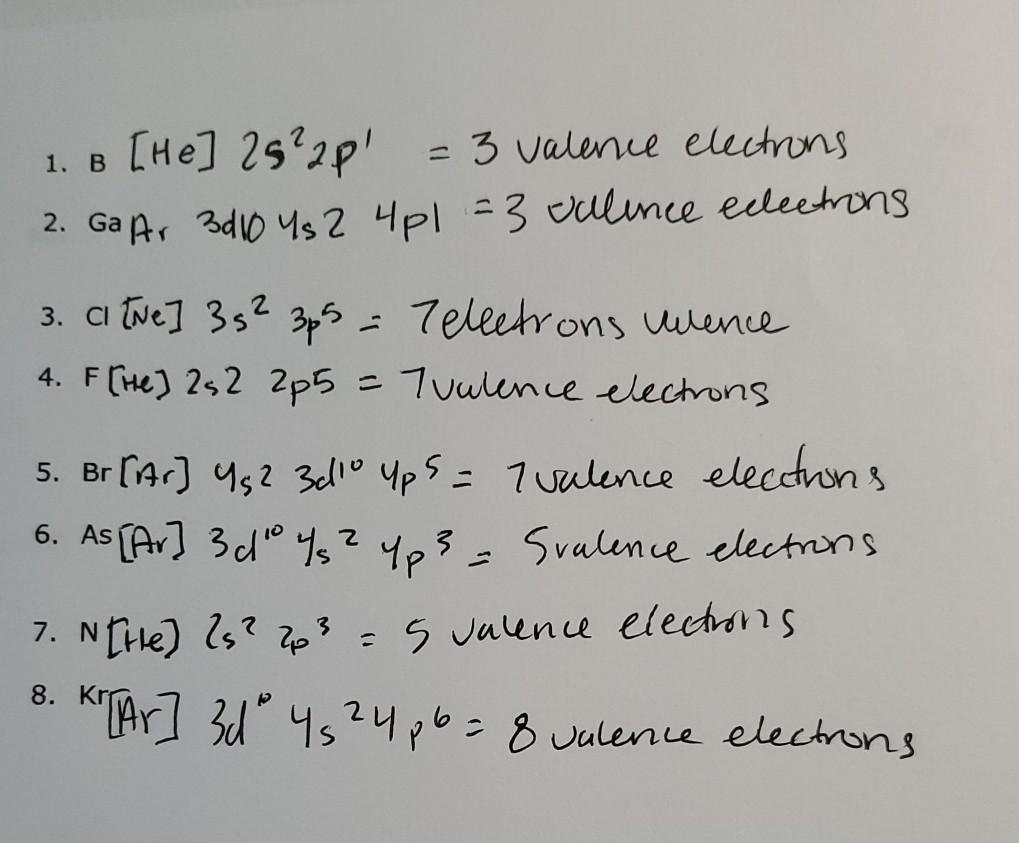 1. B [He] 2s²2p¹ = 3 valence electrons
2. Ga Ar 3d10 4s2 4p1 = 3 valence eeleetrons
3. Cl [Ne] 3s² 3p⁵ = 7 electrons valence
4. F [He] 2s2 2p5 = 7 valence electrons
5. Br [Ar] 4s2 3d¹⁰ 4p⁵ = 7 valence elecctrons
6. As [Ar] 3d¹⁰ 4s² 4p³ = 5 valence electrons
7. N [He] 2s² 2p³ = 5 valence electrons
8. Kr [Ar] 3d¹⁰ 4s²4p⁶ = 8 valence electrons